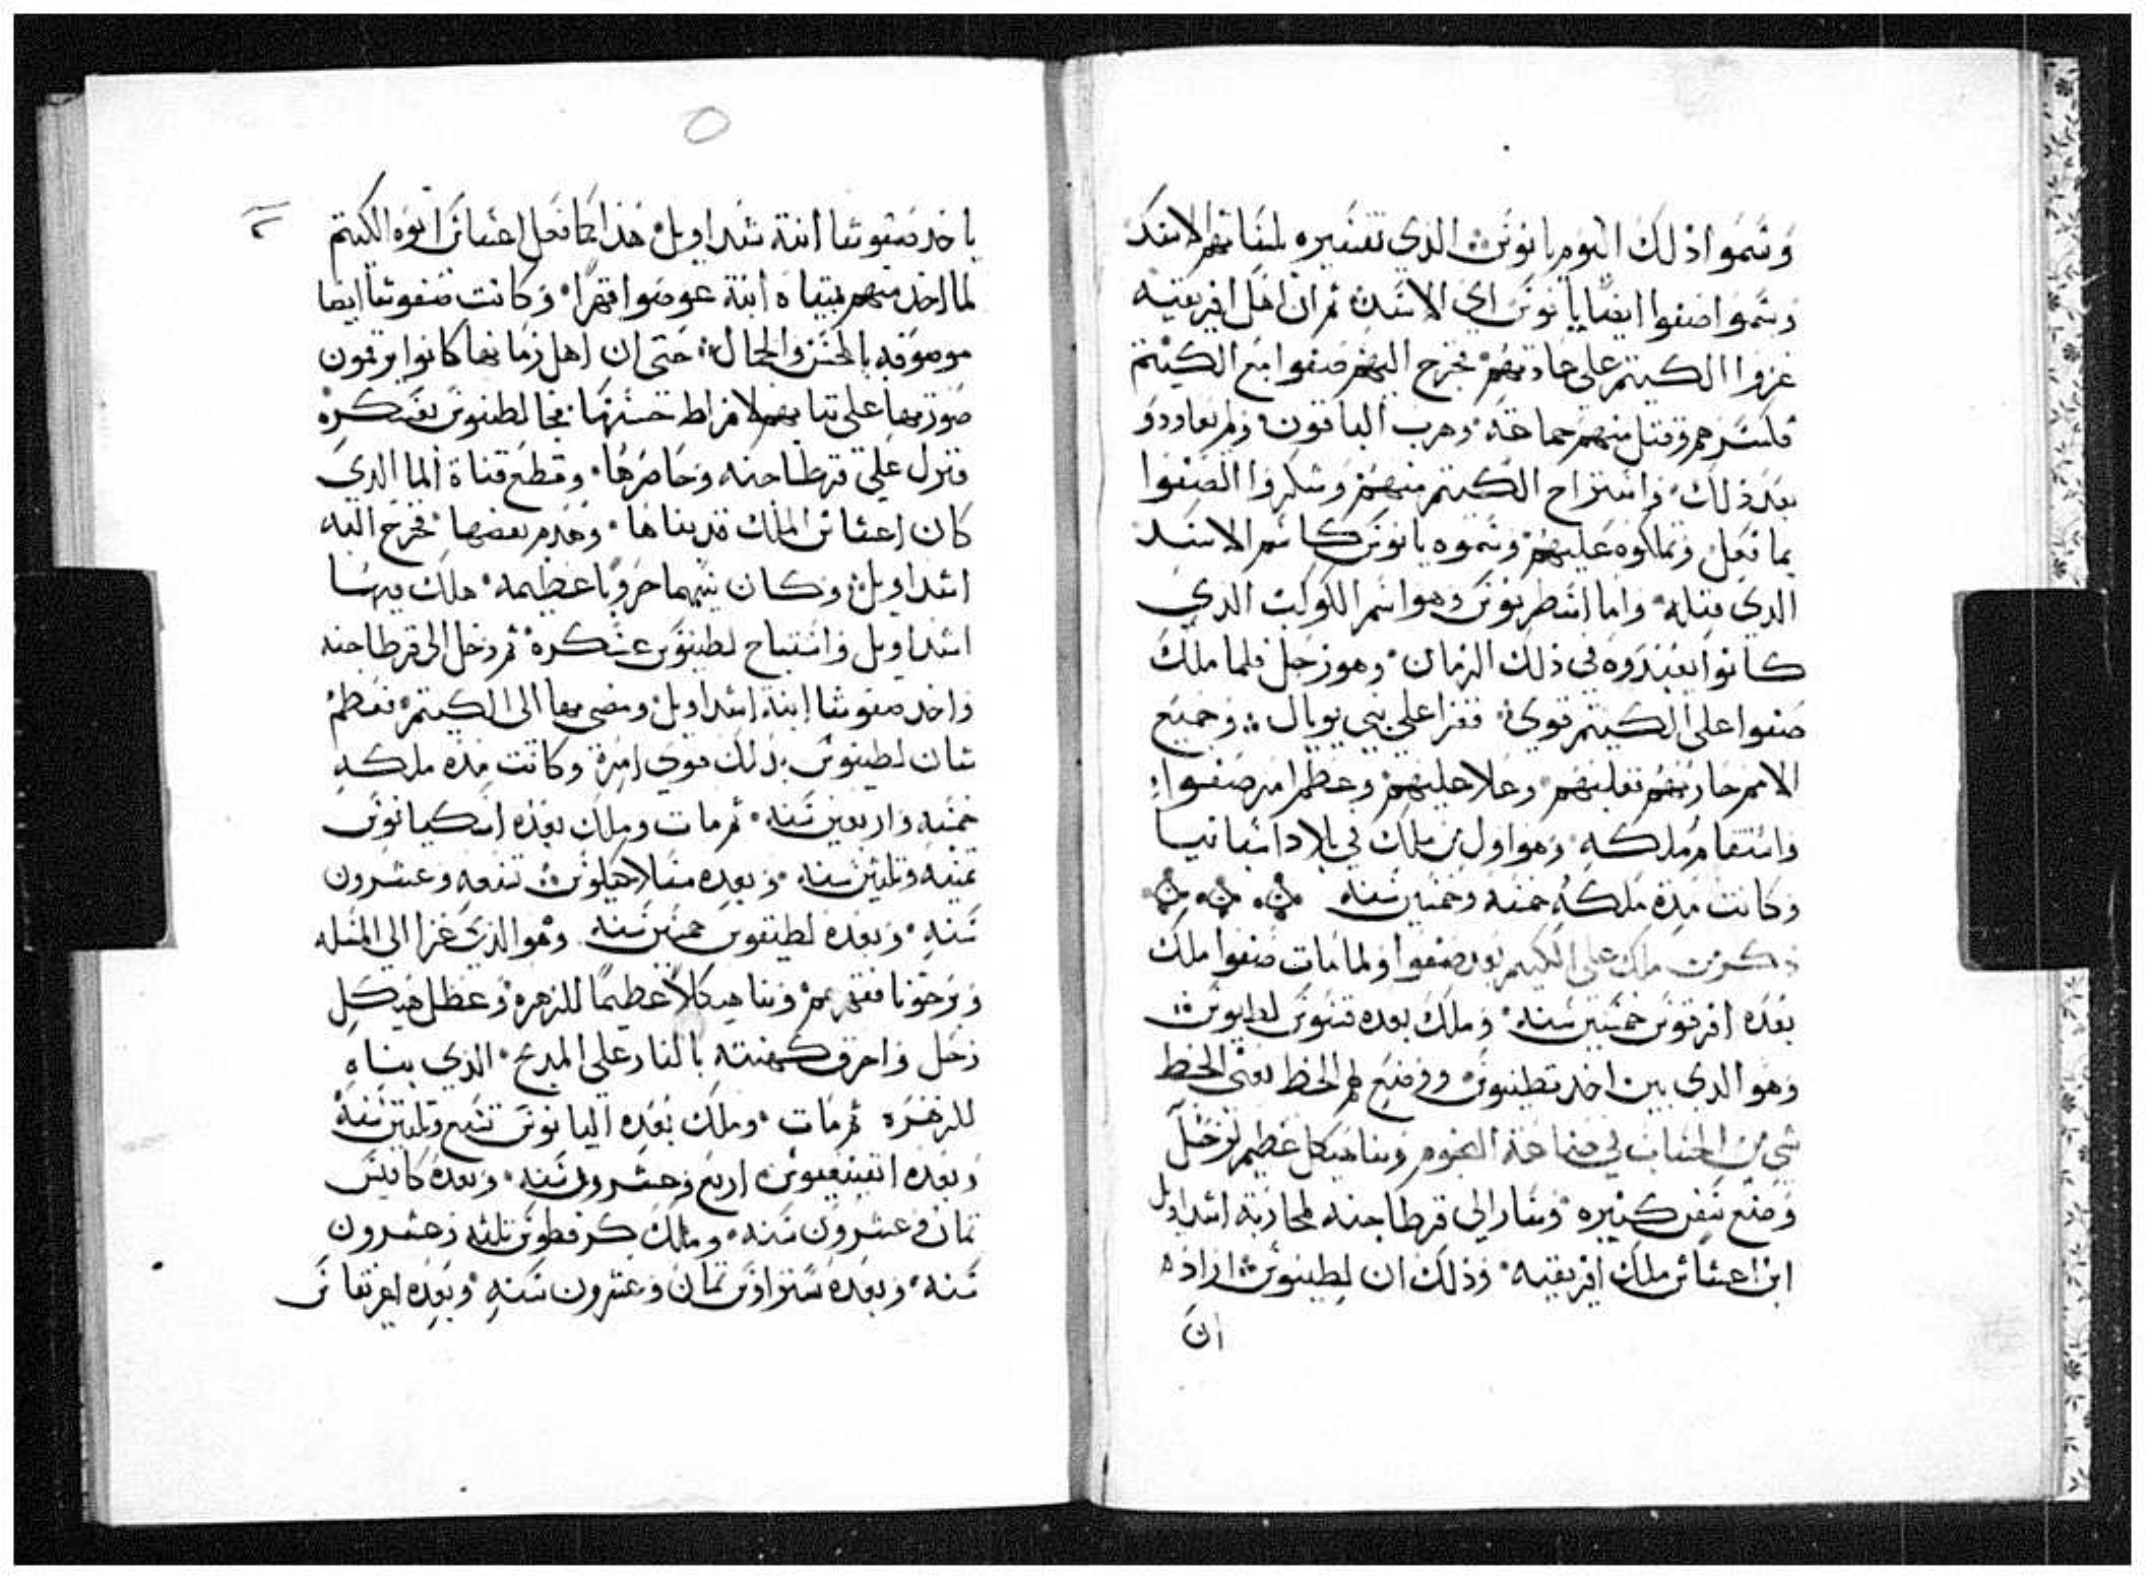 وسموا ذلك اليوم يانوس الذي تفسيره بلسانهم الاسد
وسموا صفوا ايضا يانوس اي الاسد ثم ان اهل افريقيه
غزوا الكيتم على عادتهم فخرج اليهم صفوا مع الكيتم
فكسرهم وقتل منهم جماعة وهرب الباقون ولم يعاودو
بعد ذلك واستراح الكيتم منهم وشكروا الصفوا
بما فعل وملكوه عليهم وسموه يانوس كاسم الاسد
الذي قتله واما اشطرنوس وهو اسم الكوكب الذي
كانوا يعبدوه في ذلك الزمان وهو زحل فلما ملك
صفوا على الكيتم قوي فغزا على بني يوبال وجميع
الامم حاربهم فغلبهم وعلا عليهم وعظم امر صفوا
واستقام ملكه وهو اول من ملك في بلاد اسبانيا
وكانت مدة ملكه خمسة وخمسين سنه
ذكر من ملك على الكيتم بعد صفوا ولما مات صفوا ملك
بعده افرقوس خمسين سنه وملك بعده قنسوس لطينوس
وهو الذي بين احد ووضع لهم الخط يعني الخط
شي من الحساب في صناعة النجوم وبنا هيكل عظيم لزحل
وصنع سفن كثيره وسار الى قرطاجنه لمحاربة اشداوبل
ابن اعشانس ملك افريقيه وذلك ان لطينوس اراد
ان
ياخد صفوشا ابنة شداوبل هذا كما فعل اعشانس ابوه الكيتم
لما اخذ منهم ابنة عوصوا قهرا وكانت صفوشا ايضا
موصوفه بالحسن والجمال حتى ان اهل زمانها كانوا يرقمون
صورتها على ثيابهم لافراط حسنها فجا لطينوس بعسكره
فنزل على قرطاجنه وحاصرها وقطع قناة الما الذي
كان اعشانس الملك قد بناها وهدم بعضها فخرج اليه
اشداوبل وكان بينهما حروبا عظيمه هلك فيها
اشداوبل واستباح لطينوس عسكره ثم دخل الى قرطاجنه
واخد صفوشا ابنة اشداوبل ومضى بها الى الكيتم فعظم
شان لطينوس بذلك قوي امره وكانت مدة ملكه
خمسه واربعين سنه ثم مات وملك بعده اسكيانوس
تمنيه وتلتين سنه وبعده تسعه وعشرون
سنه وبعده لطينوس خمسين سنه وهو الذي غزا الى
وبرجونا فقهرهم وبنا هيكلا عظيما للزهره وعطل هيكل
زحل واحرق كهنته بالنار على المدبح الذي بناه
للزهره ثم مات وملك بعده اليانوس تسع وتلتين سنة
وبعده اربع وعشرون سنه وبعده كافيس
تمان وعشرون سنه وملك كرفطوس تلته وعشرون
سنه وبعده تمان وعشرون سنه وبعده